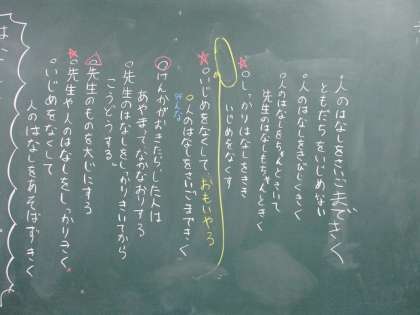 人のはなしをさいごまできく
ともだちをいじめない
○人のはなしをきびしくきく
○人のはなしをちゃんときいて
先生のはなしもちゃんときく
○しっかりはなしをきき
いじめをなくす
○いじめをなくして、おもいやる
○人のはなしをさいごまできく
みんな
○けんかがおきたらじた人は
あやまってなかなおりする
○先生のはなしをしっかりきいてから
こうどうする
○先生のものを大じにする
○先生や人のはなしをしっかりきく。
○いじめをなくして
人のはなしをあそばずきく